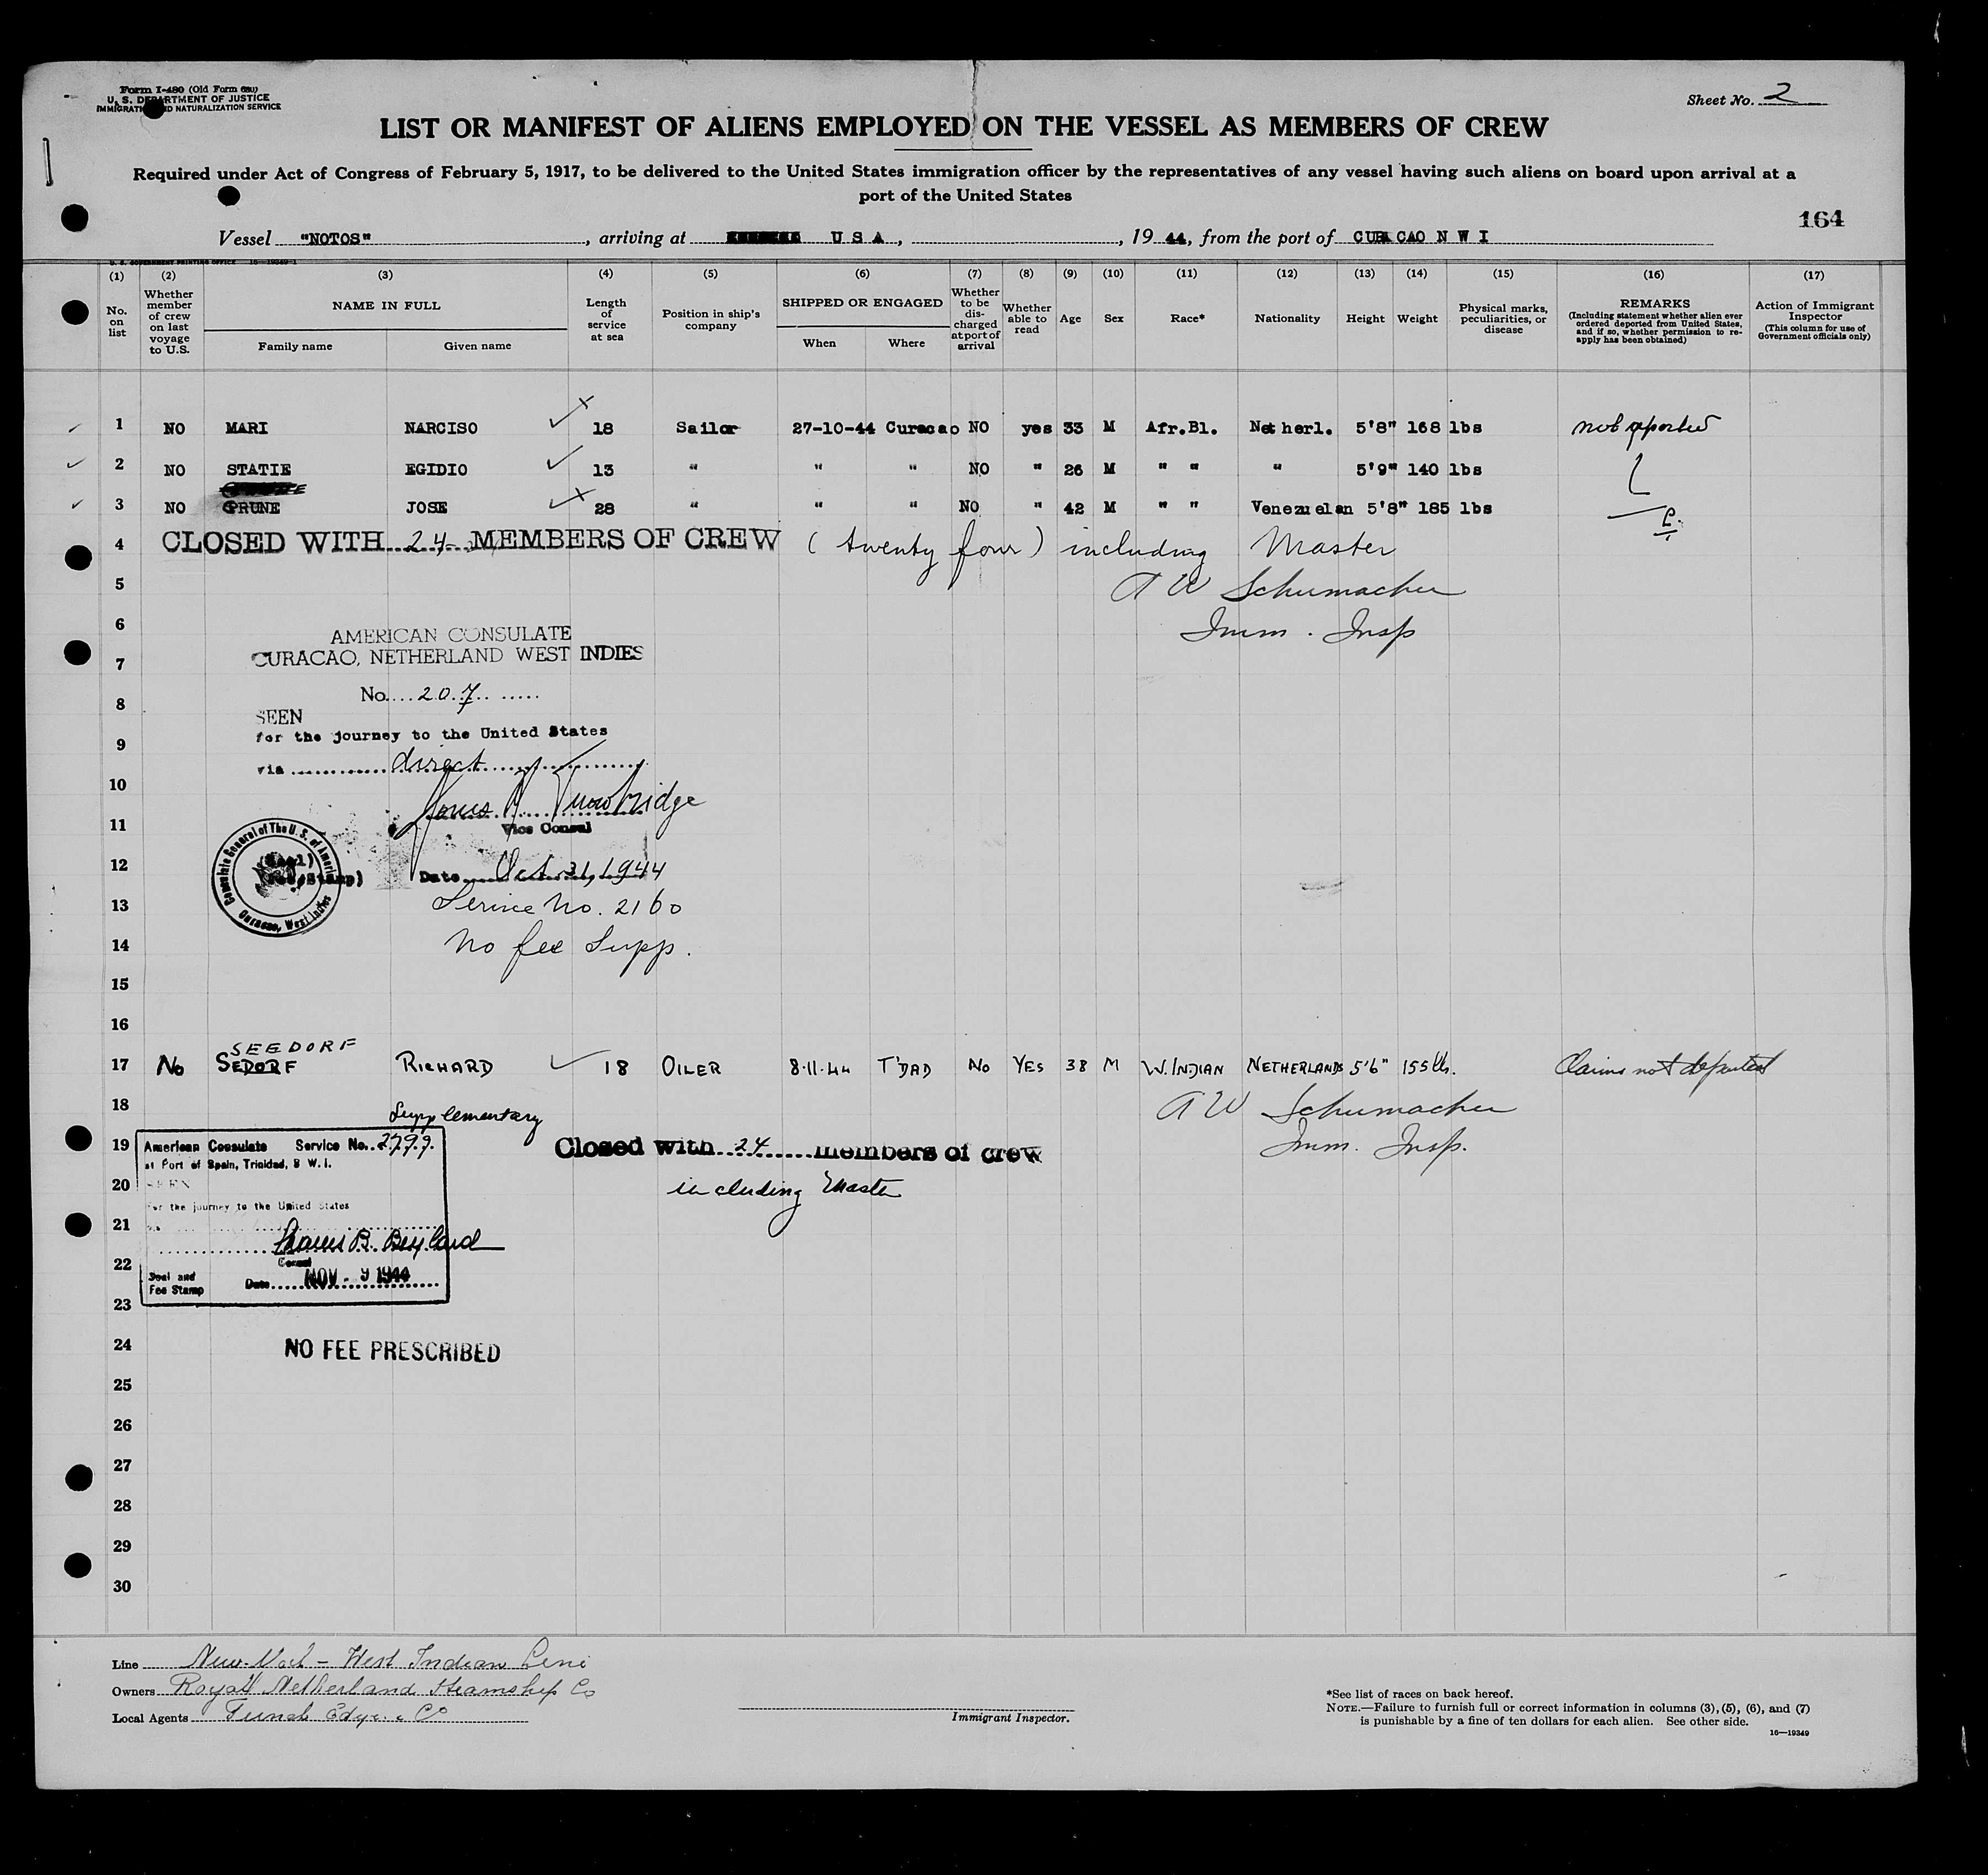 Form I-480 (Old Form 680)
U. S. DEPARTMENT OF JUSTICE
IMMIGRATION AND NATURALIZATION SERVICE
Sheet No. 2
LIST OR MANIFEST OF ALIENS EMPLOYED ON THE VESSEL AS MEMBERS OF CREW
Required under Act of Congress of February 5, 1917, to be delivered to the United States immigration officer by the representatives of any vessel having such aliens on board upon arrival at a
port of the United States
164
Vessel "NOTOS", arriving at U S A, , 19 44, from the port of CURACAO N W I
U. S. GOVERNMENT PRINTING OFFICE 16—19349-1
(1) (2) (3) (4) (5) (6) (7) (8) (9) (10) (11) (12) (13) (14) (15) (16) (17)
No. on list
Whether member of crew on last voyage to U.S.
NAME IN FULL
Family name
Given name
Length of service at sea
Position in ship's company
SHIPPED OR ENGAGED
When
Where
Whether to be discharged at port of arrival
Whether able to read
Age
Sex
Race*
Nationality
Height
Weight
Physical marks, peculiarities, or disease
REMARKS
(Including statement whether alien ever ordered deported from United States, and if so, whether permission to reapply has been obtained)
Action of Immigrant Inspector
(This column for use of Government officials only)
1 NO MARI NARCISO 18 Sailor 27-10-44 Curacao NO yes 33 M Afr.Bl. Netherl. 5'8" 168 lbs
2 NO STATIE EGIDIO 13 " " " NO " 26 M " " " 5'9" 140 lbs
3 NO PRUNE JOSE 28 " " " NO " 42 M " " Venezuelan 5'8" 185 lbs
4 CLOSED WITH 24 MEMBERS OF CREW (twenty four) including Master
5 A W Schumacher
6 Imm. Insp
AMERICAN CONSULATE
7 CURACAO, NETHERLAND WEST INDIES
No. 207
8
SEEN
9 for the journey to the United States
via direct
10
11 Vice Consul
Consulate General of The U. S. of America
Curacao, West Indies
(Seal)
(Fee Stamp)
12 Date Oct. 31, 1944
13 Service No. 2160
14 No fee Supp.
15
16
SEEDORF
17 No SEDORF RICHARD 18 OILER 8·11·44 T'DAD No YES 38 M W. INDIAN NETHERLANDS 5'6" 155 lbs. Claims not deported
18 Supplementary A W Schumacher
19 American Consulate Service No. 2799. Closed with 24 members of crew Imm. Insp.
at Port of Spain, Trinidad, B W. I.
20 SEEN including Master
for the journey to the United States
21
22 Consul
Seal and Fee Stamp
Date NOV - 9 1944
23
24 NO FEE PRESCRIBED
25
26
27
28
29
30
Line New York - West Indian Line
Owners Royal Netherland Steamship Co
Local Agents Funch Edye & Co
Immigrant Inspector.
*See list of races on back hereof.
NOTE.—Failure to furnish full or correct information in columns (3), (5), (6), and (7)
is punishable by a fine of ten dollars for each alien. See other side.
16—19349